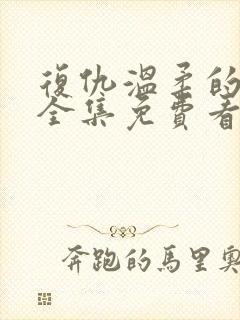 復仇溫柔的
全集免費看
奔跑的馬里奧